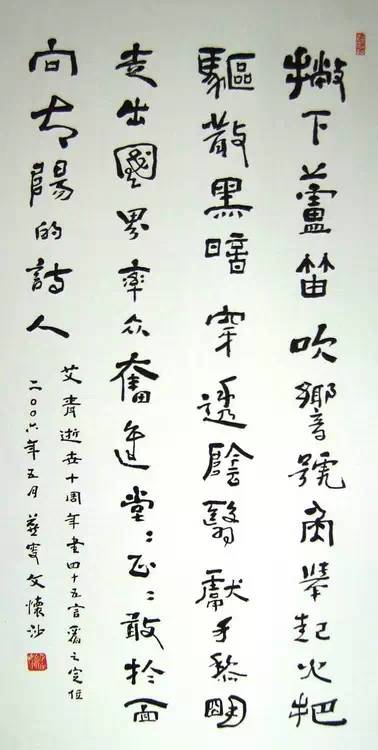 撇下蘆笛吹響號角舉起火把
驅散黑暗穿透陰翳獻于黎明
走出國界率众奮進堂：正：敢於面
向太陽的詩人
艾青逝世十周年書四十五言為之定位
二〇〇六年五月 燕叟文懷沙